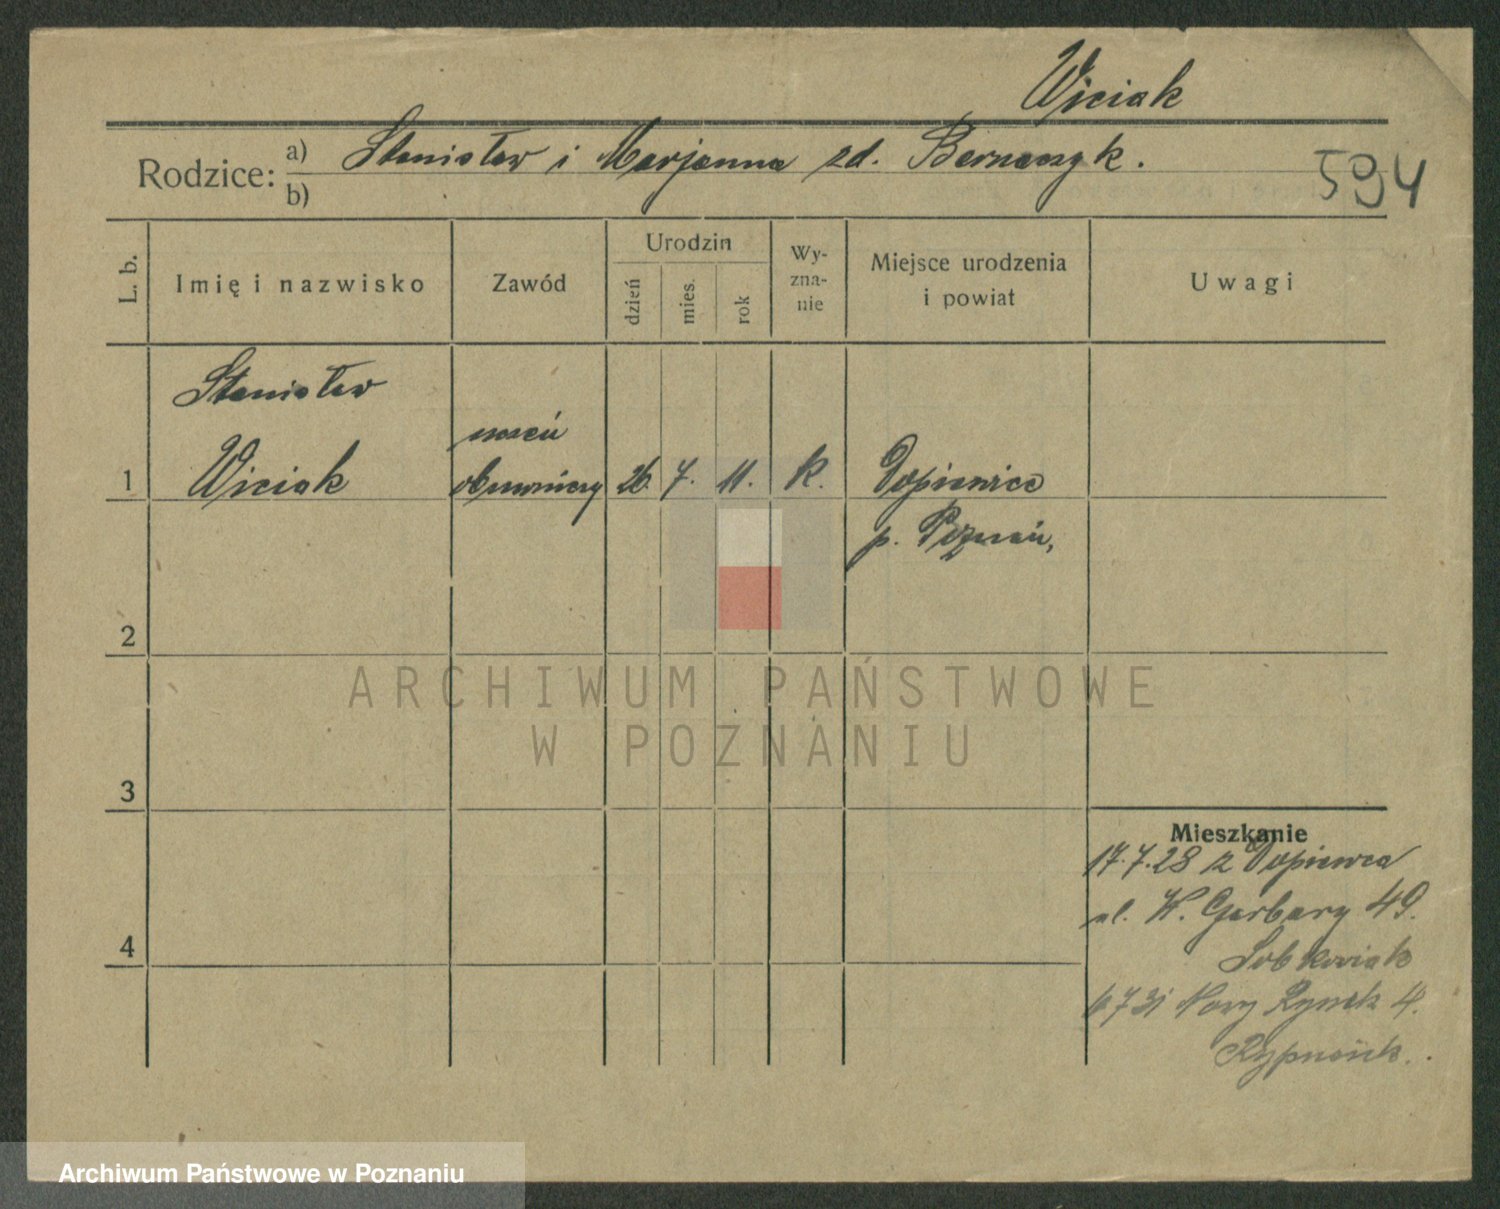 Wiciak
Rodzice: a) Stanisław i Marjanna zd. Bernaczyk.
b)
594
L. b.
Imię i nazwisko
Zawód
Urodzin
dzień
mies.
rok
Wy-
zna-
nie
Miejsce urodzenia
i powiat
Uwagi
Stanisław
uczeń
1 Wiciak obuwniczy 26. 7. 11. k. Dopiewiec
p. Poznań,
2
ARCHIWUM PAŃSTWOWE
W POZNANIU
3
Mieszkanie
17.7.28 z Dopiewca
ul. W. Garbary 49.
4
Sobkowiak
6 7 31 Nowy Rynek 4.
Archiwum Państwowe w Poznaniu